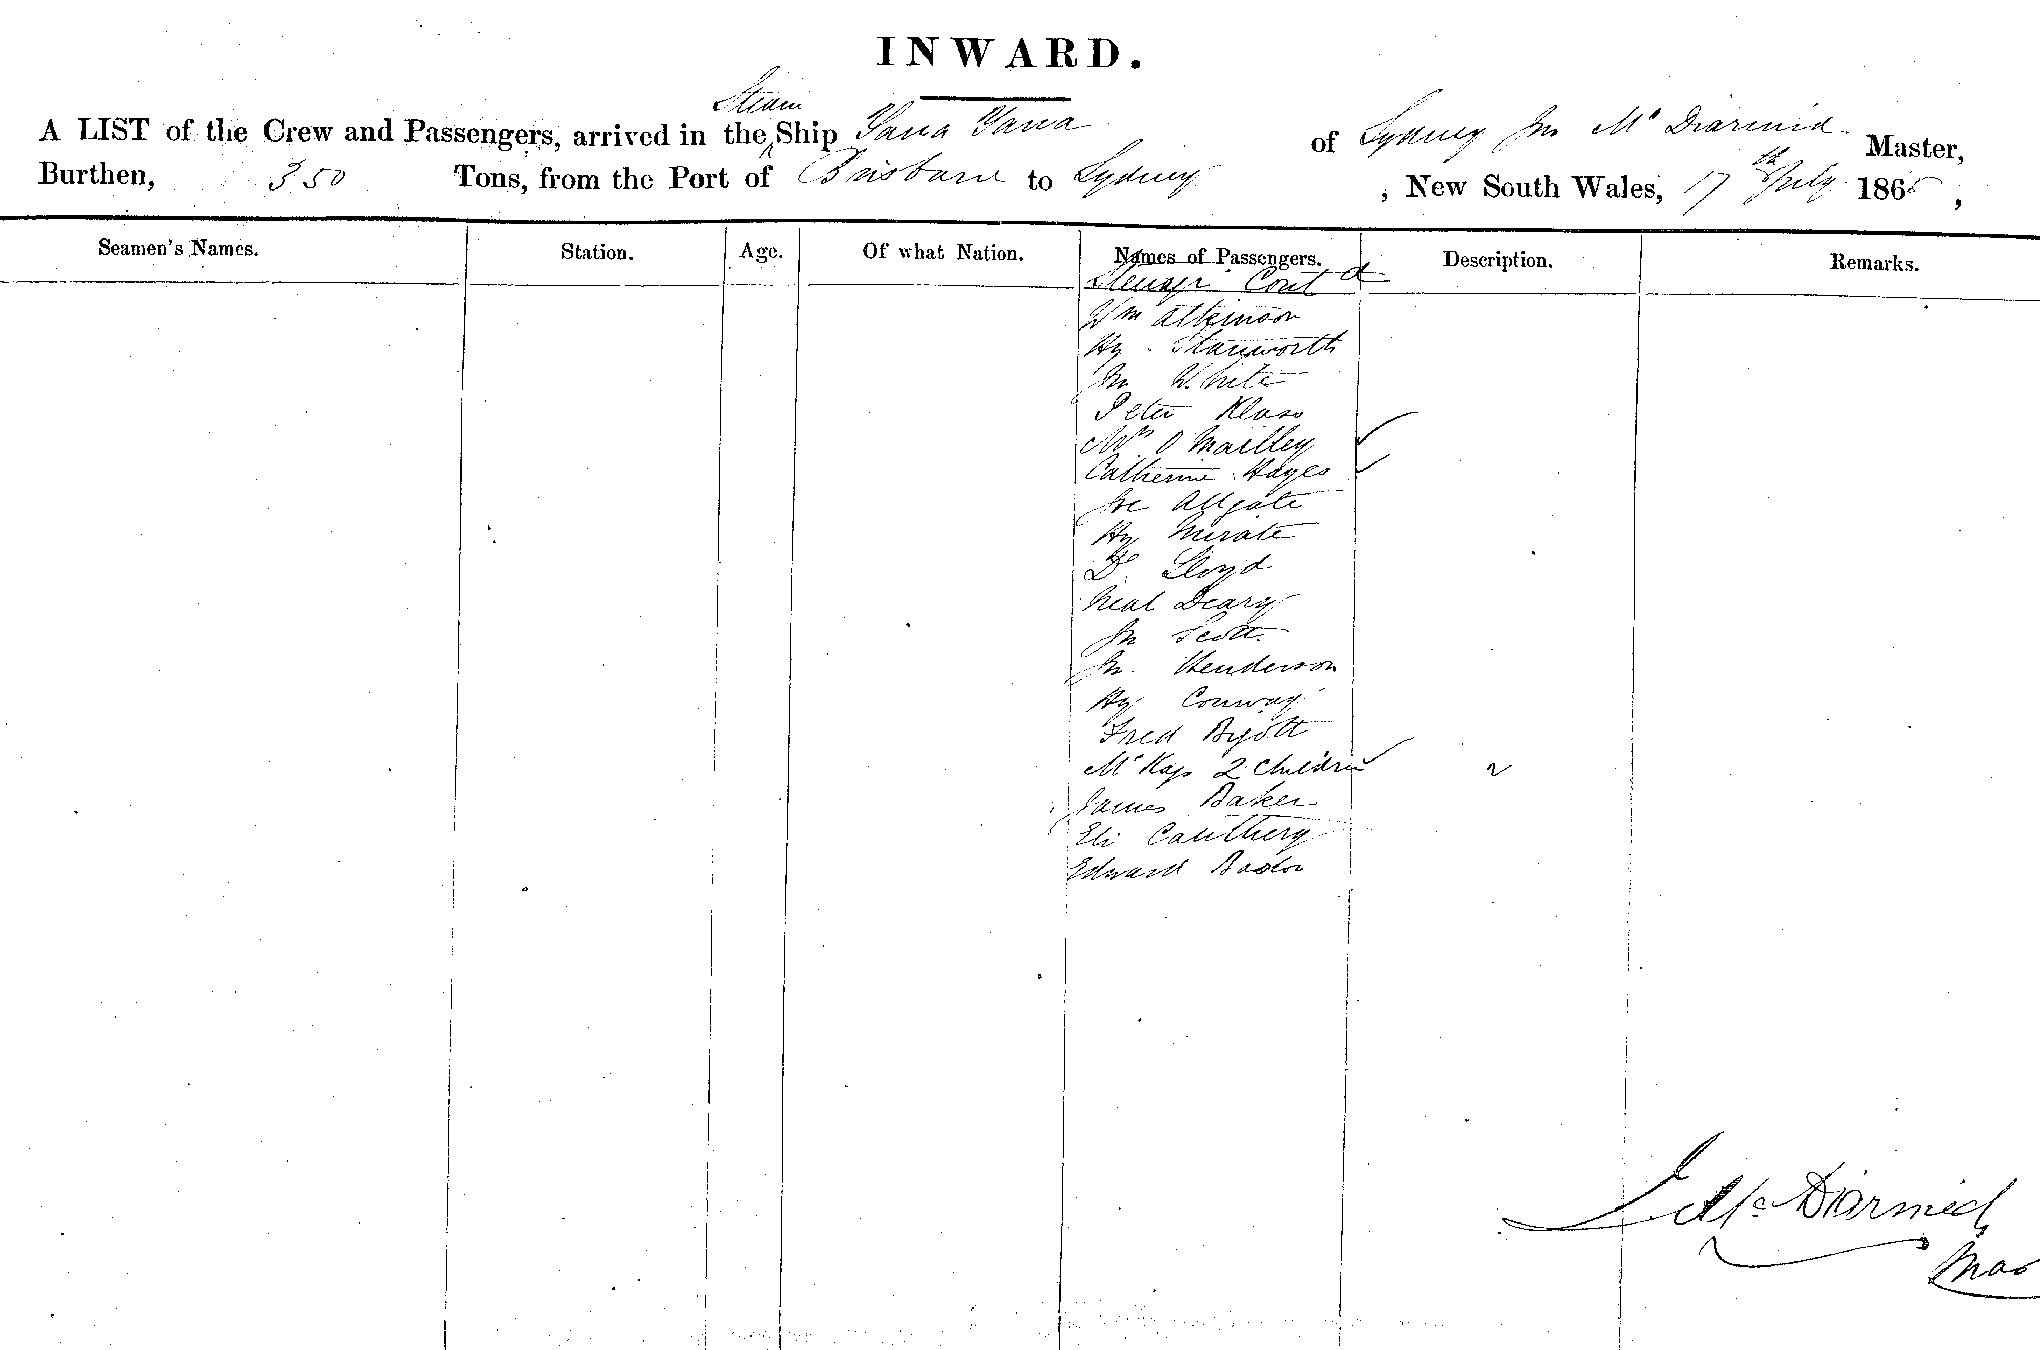 INWARD.
Steam
A LIST of the Crew and Passengers, arrived in the Ship Yarra Yarra of Sydney Jno McDiarmid Master,
Burthen, 350 Tons, from the Port of Brisbane to Sydney, New South Wales, 17th July 1865,
Seamen's Names. Station. Age. Of what Nation. Names of Passengers. Description. Remarks.
Contd
Wm Atkinson
Hy Stanworth
Jno White
Peter Klaso
Mrs O Mailley
Catherine Hayes
Allgate
Hy Mirate
D. Lloyd
Neal Deary
Jno Scott
Jno Henderson
Hy Conway
Fred Bigott
2 Children
James Baker
Eli Cauthery
Edward
J McDiarmid
Mas